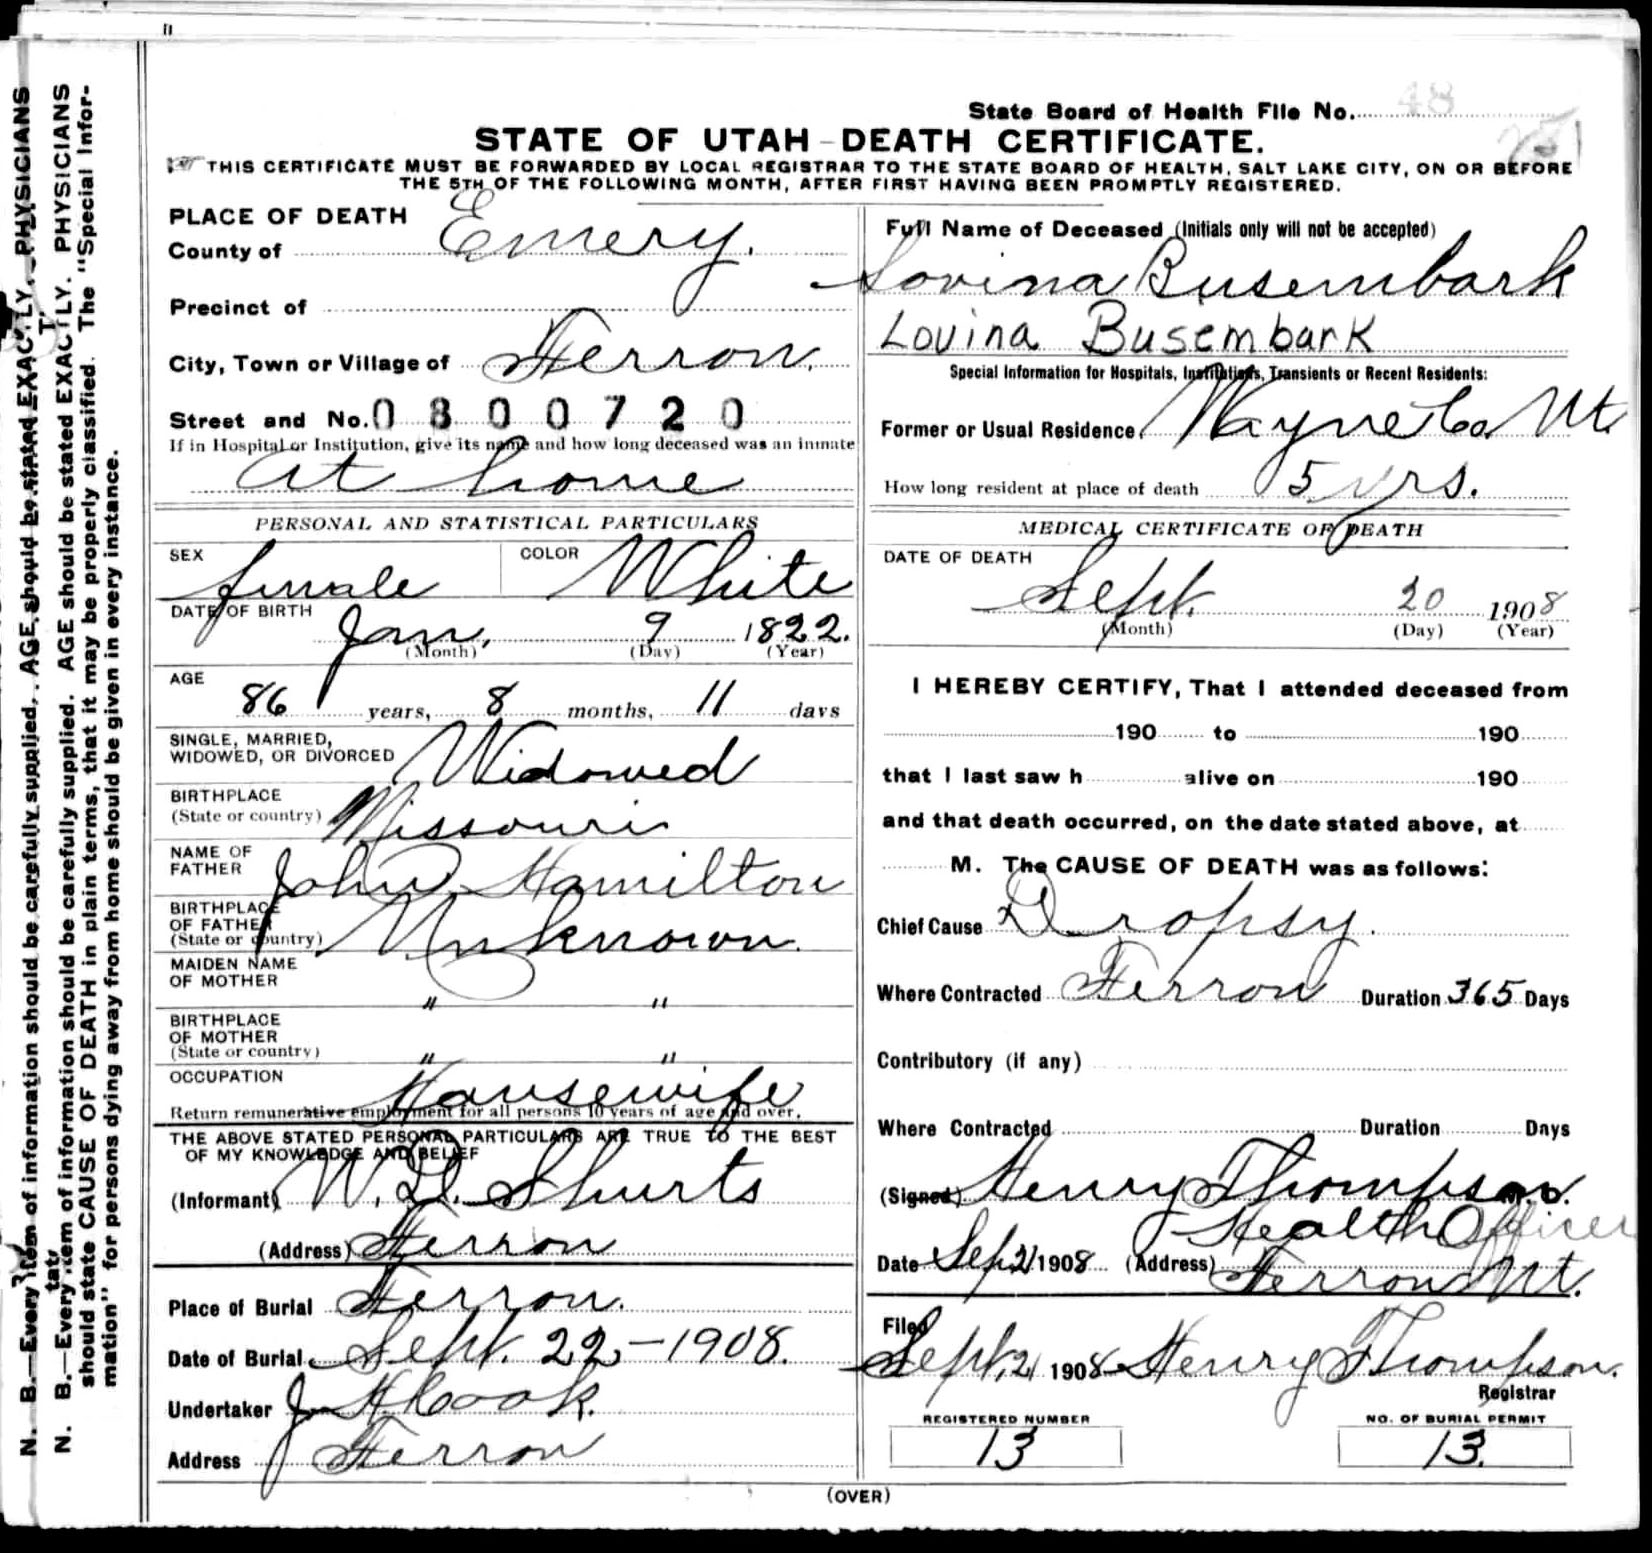 State Board of Health File No. 48
STATE OF UTAH-DEATH CERTIFICATE.
THIS CERTIFICATE MUST BE FORWARDED BY LOCAL REGISTRAR TO THE STATE BOARD OF HEALTH, SALT LAKE CITY, ON OR BEFORE
THE 5TH OF THE FOLLOWING MONTH, AFTER FIRST HAVING BEEN PROMPTLY REGISTERED.
PLACE OF DEATH
County of Emery.
Precinct of
City, Town or Village of Ferron.
Street and No. 0800720
If in Hospital or Institution, give its name and how long deceased was an inmate
At home
PERSONAL AND STATISTICAL PARTICULARS
SEX female COLOR White
DATE OF BIRTH
Jan. 9 1822.
(Month) (Day) (Year)
AGE
86 years, 8 months, 11 days
SINGLE, MARRIED,
WIDOWED, OR DIVORCED Widowed
BIRTHPLACE
(State or country) Missouri
NAME OF
FATHER John Hamilton
BIRTHPLACE
OF FATHER
(State or country) Unknown.
MAIDEN NAME
OF MOTHER " "
BIRTHPLACE
OF MOTHER
(State or country) " "
OCCUPATION Housewife
Return remunerative employment for all persons 10 years of age and over.
THE ABOVE STATED PERSONAL PARTICULARS ARE TRUE TO THE BEST
OF MY KNOWLEDGE AND BELIEF
(Informant) W. D. Shurts
(Address) Ferron
Place of Burial Ferron.
Date of Burial Sept. 22-1908.
Undertaker J H Cook.
Address Ferron
Full Name of Deceased (Initials only will not be accepted)
Lovina Busembark
Lovina Busembark
Special Information for Hospitals, Institutions, Transients or Recent Residents:
Former or Usual Residence Wayne Co. Ut.
How long resident at place of death 5 yrs.
MEDICAL CERTIFICATE OF DEATH
DATE OF DEATH
Sept. 20 1908
(Month) (Day) (Year)
I HEREBY CERTIFY, That I attended deceased from
190 to 190
that I last saw h alive on 190
and that death occurred, on the date stated above, at
M. The CAUSE OF DEATH was as follows:
Chief Cause Dropsy.
Where Contracted Ferron Duration 365 Days
Contributory (if any)
Where Contracted Duration Days
(Signed) Henry Thompson M.D.
Health Officer
Date Sep. 21 1908 (Address) Ferron Ut.
Filed
Sept. 21 1908 Henry Thompson.
Registrar
REGISTERED NUMBER
13
NO. OF BURIAL PERMIT
13.
(OVER)
N. B.—Every item of information should be carefully supplied. AGE should be stated EXACTLY. PHYSICIANS
N. B.—Every item of information should be carefully supplied. AGE should be stated EXACTLY. PHYSICIANS
should state CAUSE OF DEATH in plain terms, that it may be properly classified. The "Special Infor-
mation" for persons dying away from home should be given in every instance.